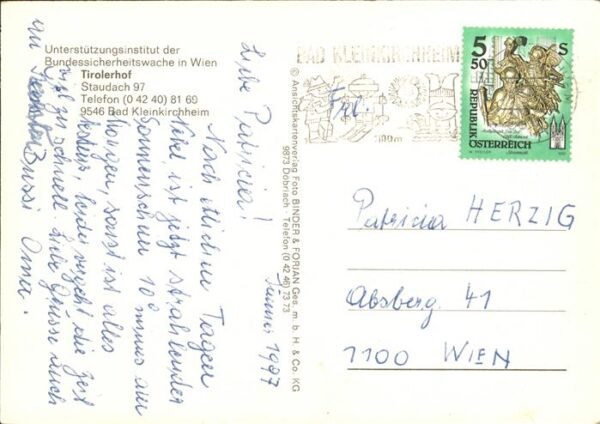 Unterstützungsinstitut der
Bundessicherheitswache in Wien
Tirolerhof
Staudach 97
Telefon (0 42 40) 81 60
9546 Bad Kleinkirchheim
Liebe Patricia!
Nach trüben Tagen
Nebel, ist jetzt strahlender
Sonnenschein 10° minus am
Morgen, sonst ist alles
bestens, leider vergeht die Zeit
viel zu schnell. Liebe Grüsse auch
an
Bussi Oma.
Jänner 1997
© Ansichtskartenverlag Foto BINDER & FORJAN Ges. m. b. H. & Co. KG
9873 Döbriach · Telefon (0 42 46) 73 73
BAD KLEINKIRCHHEIM
1100m
5 50 S
REPUBLIK
ÖSTERREICH
Frl.
Patricia HERZIG
Absberg. 41
1100 WIEN